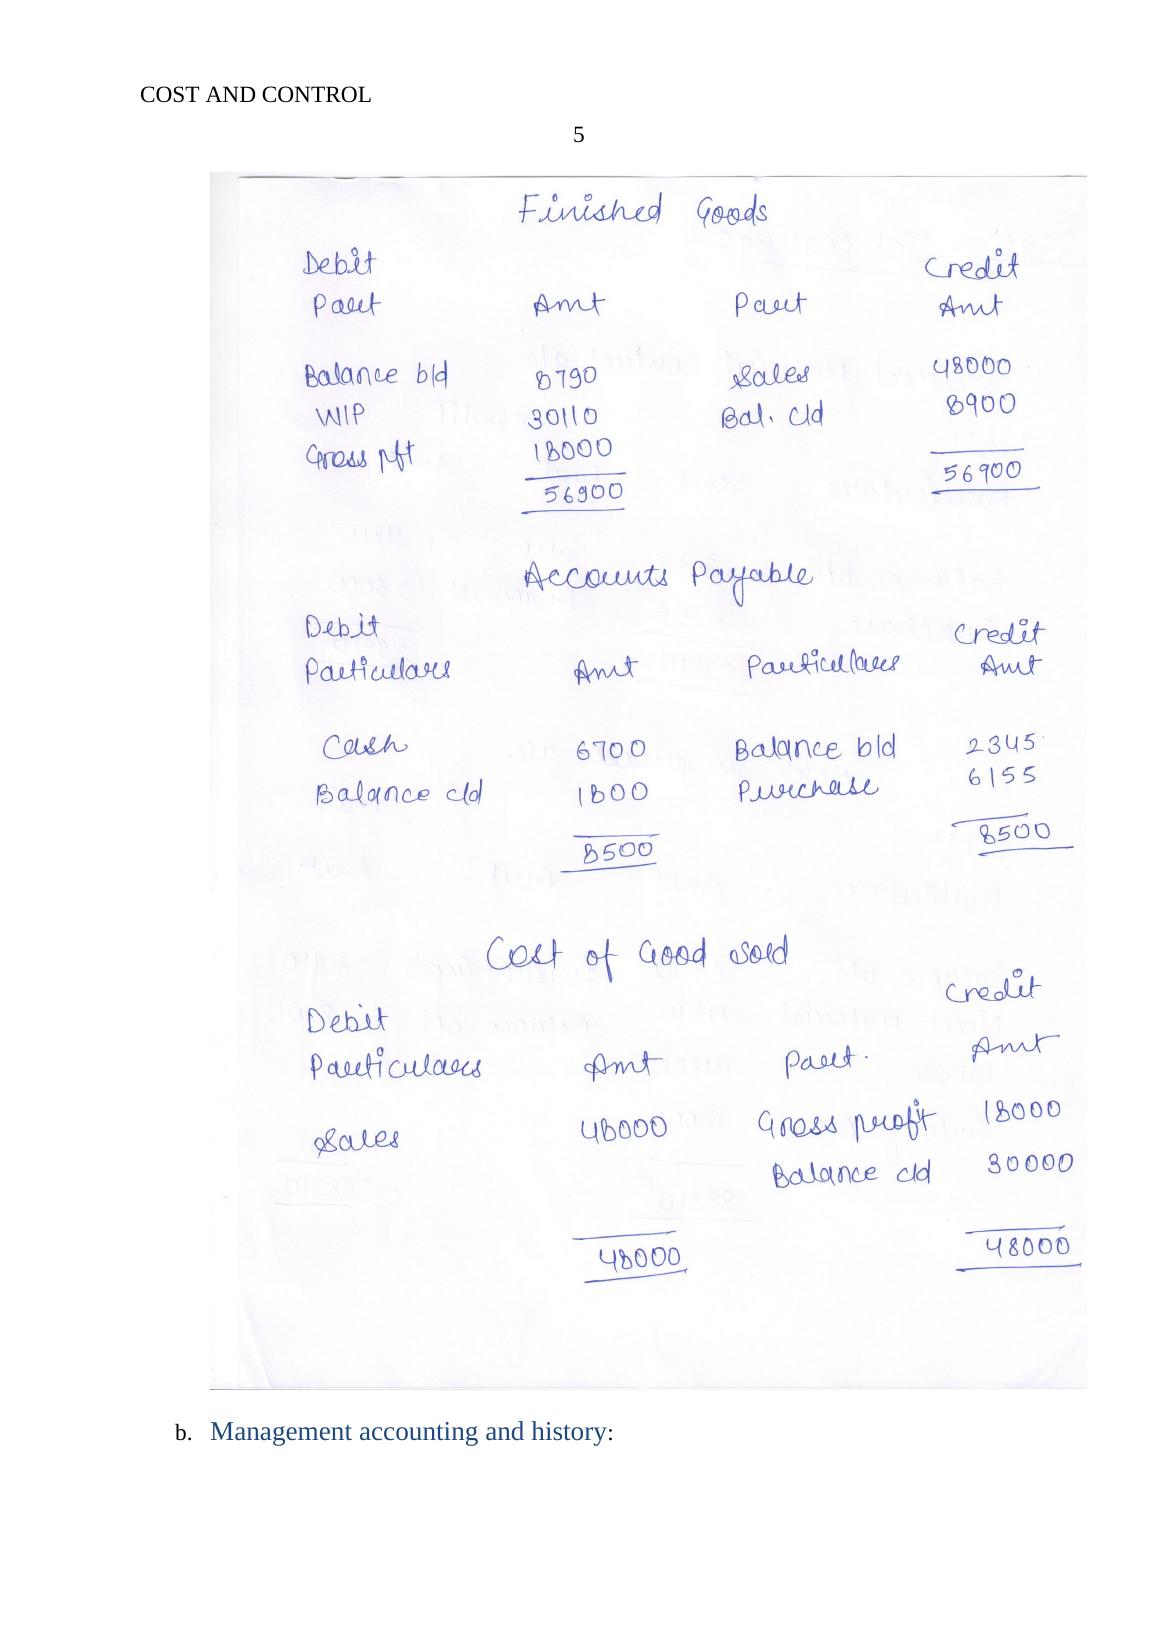 COST AND CONTROL
5
Finished Goods
Debit Credit
Part Amt Part Amt
Balance b/d 8790 Sales 48000
WIP 30110 Bal. c/d 8900
Gross pft 18000
56900 56900
Accounts Payable
Debit Credit
Particulars Amt Particulars Amt
Cash 6700 Balance b/d 2345
Balance c/d 1800 Purchase 6155
8500 8500
Cost of Good Sold
Debit Credit
Particulars Amt Part. Amt
Sales 48000 Gross profit 18000
Balance c/d 30000
48000 48000
b. Management accounting and history: